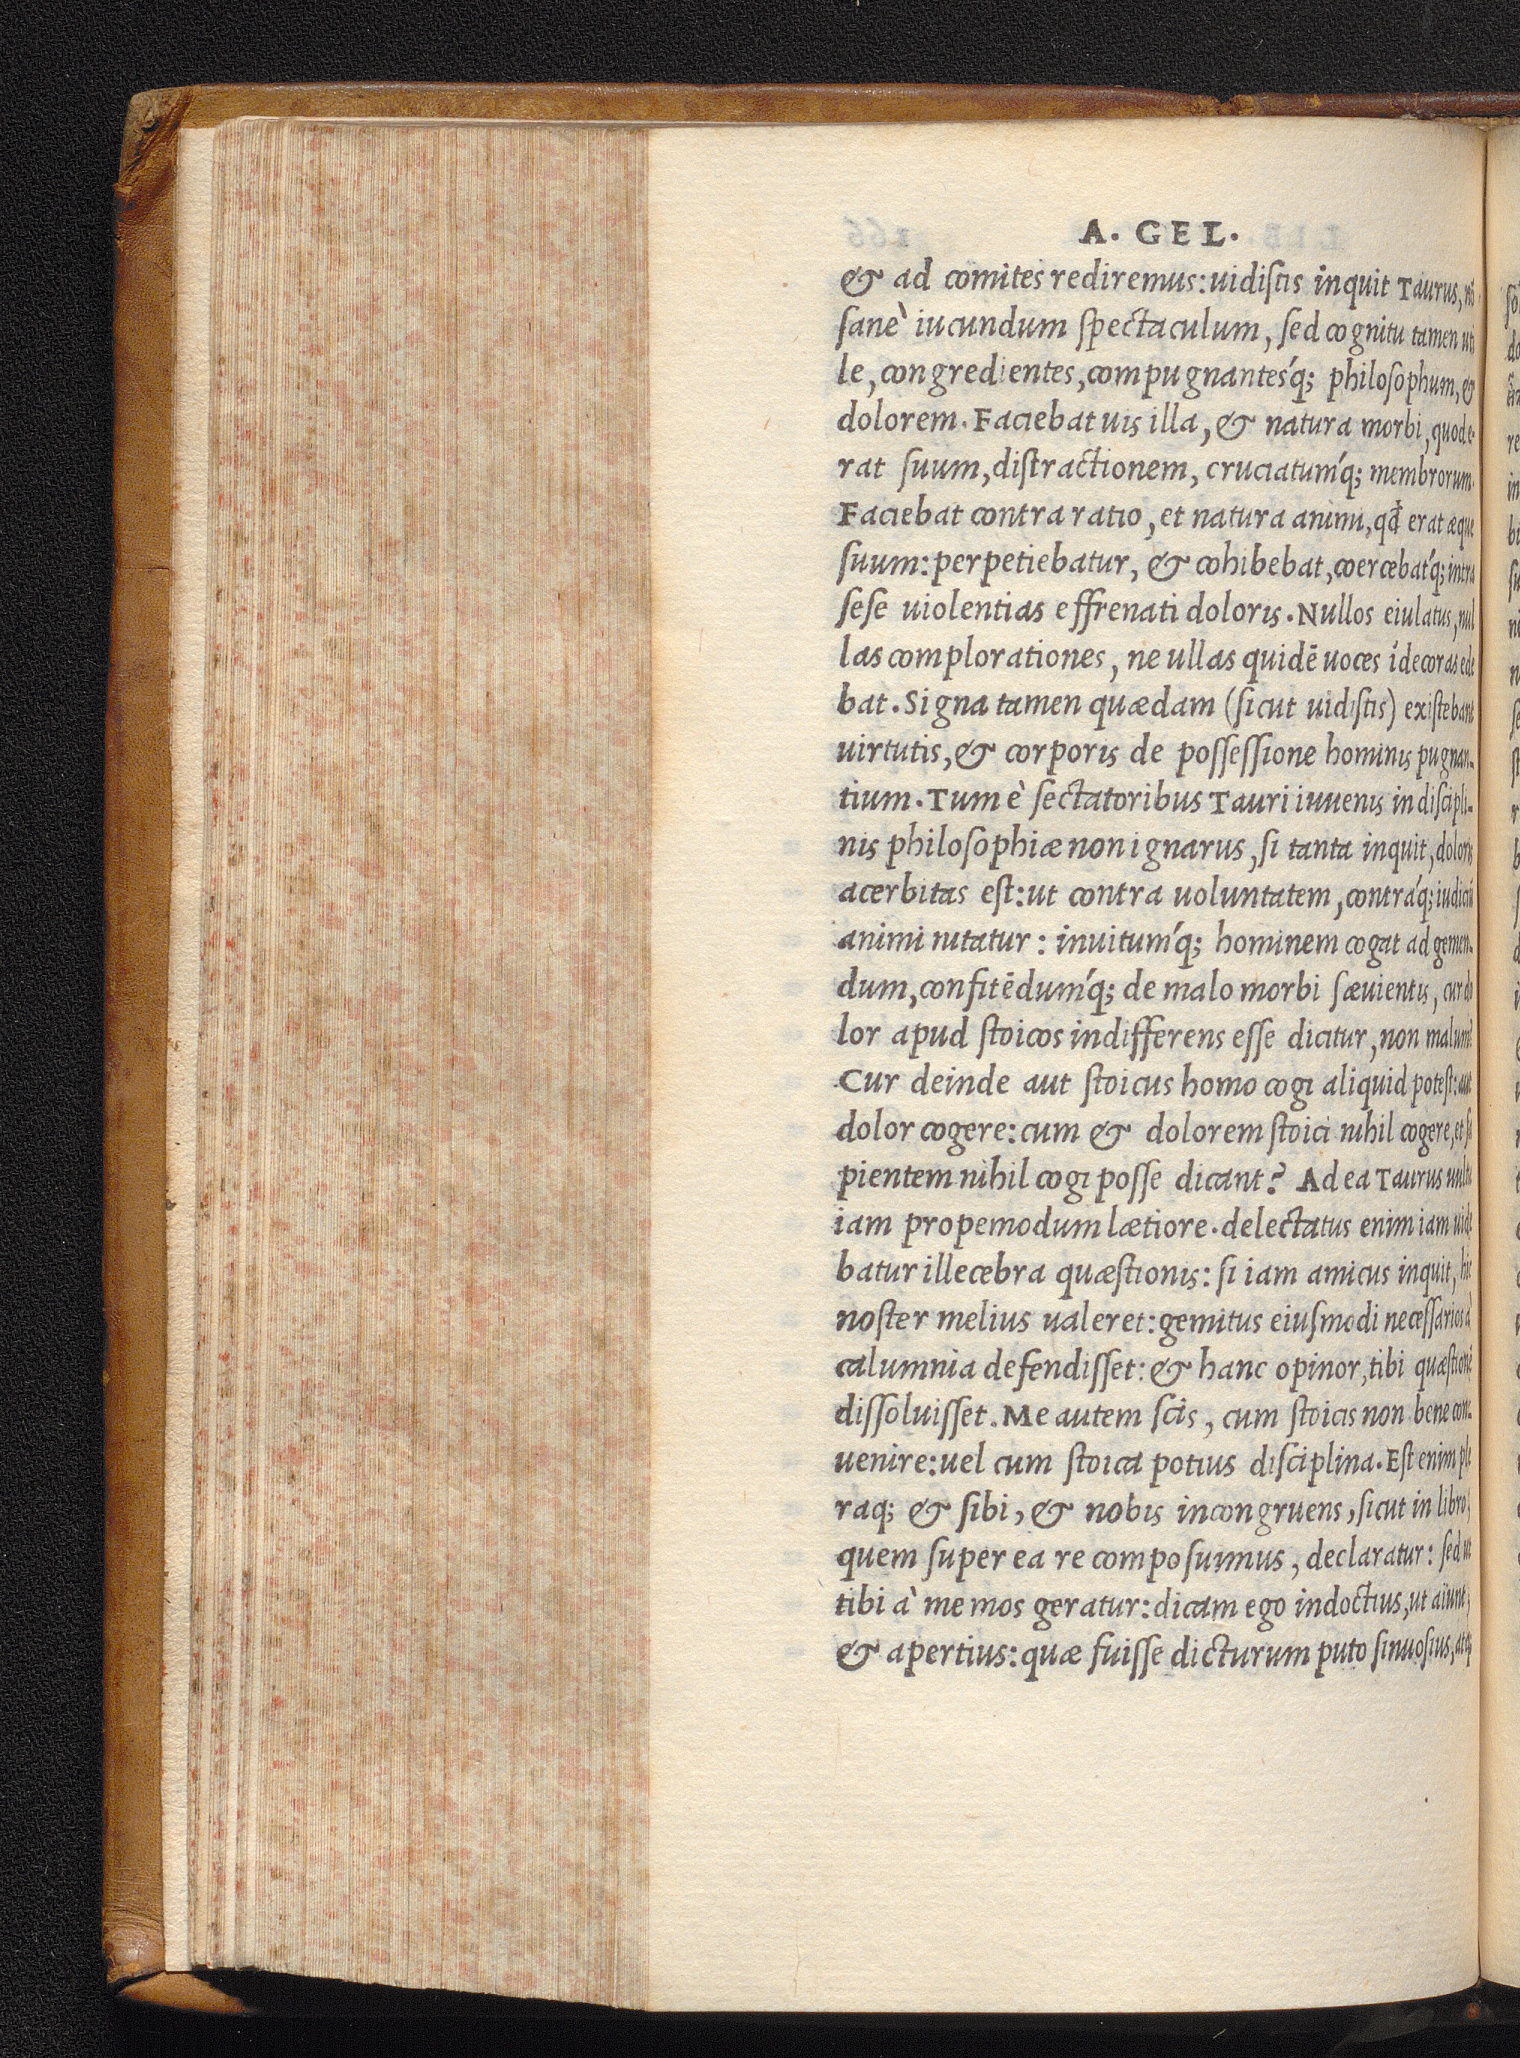 A. GEL.
& ad comites rediremus: uidistis inquit Taurus, nõ
sanè iucundum spectaculum, sed cognitu tamen uti
le, congredientes, compugnantesq́; philosophum, &
dolorem. Faciebat uis illa, & natura morbi, quod e-
rat suum, distractionem, cruciatumq́; membrorum.
Faciebat contra ratio, et natura animi, qđ erat æque
suum: perpetiebatur, & cohibebat, coercebatq́; intra
sese uiolentias effrenati doloris. Nullos eiulatus, nul
las complorationes, ne ullas quidē uoces īdecoras ede
bat. Signa tamen quædam (sicut uidistis) existebant
uirtutis, & corporis de possessione hominis pugnan-
tium. Tum è sectatoribus Tauri iuuenis in discipli-
nis philosophiæ non ignarus, si tanta inquit, doloris
acerbitas est: ut contra uoluntatem, contraq́; iudiciũ
animi nitatur: inuitumq́; hominem cogat ad gemen-
dum, confitēdumq́; de malo morbi sæuientis, cur do
lor apud stoicos indifferens esse dicitur, non malum?
Cur deinde aut stoicus homo cogi aliquid potest: aut
dolor cogere: cum & dolorem stoici nihil cogere, et sa
pientem nihil cogi posse dicant? Ad ea Taurus uultu
iam propemodum lætiore. delectatus enim iam uide
batur illecebra quæstionis: si iam amicus inquit, hic
noster melius ualeret: gemitus eiusmodi necessarios à
calumnia defendisset: & hanc opinor, tibi quæstionē
dissoluisset. Me autem scis, cum stoicis non bene con-
uenire: uel cum stoica potius disciplina. Est enim ple
raq; & sibi, & nobis incongruens, sicut in libro,
quem super ea re composuimus, declaratur: sed ut
tibi à me mos geratur: dicam ego indoctius, ut aiunt,
& apertius: quæ fuisse dicturum puto sinuosius, atq;